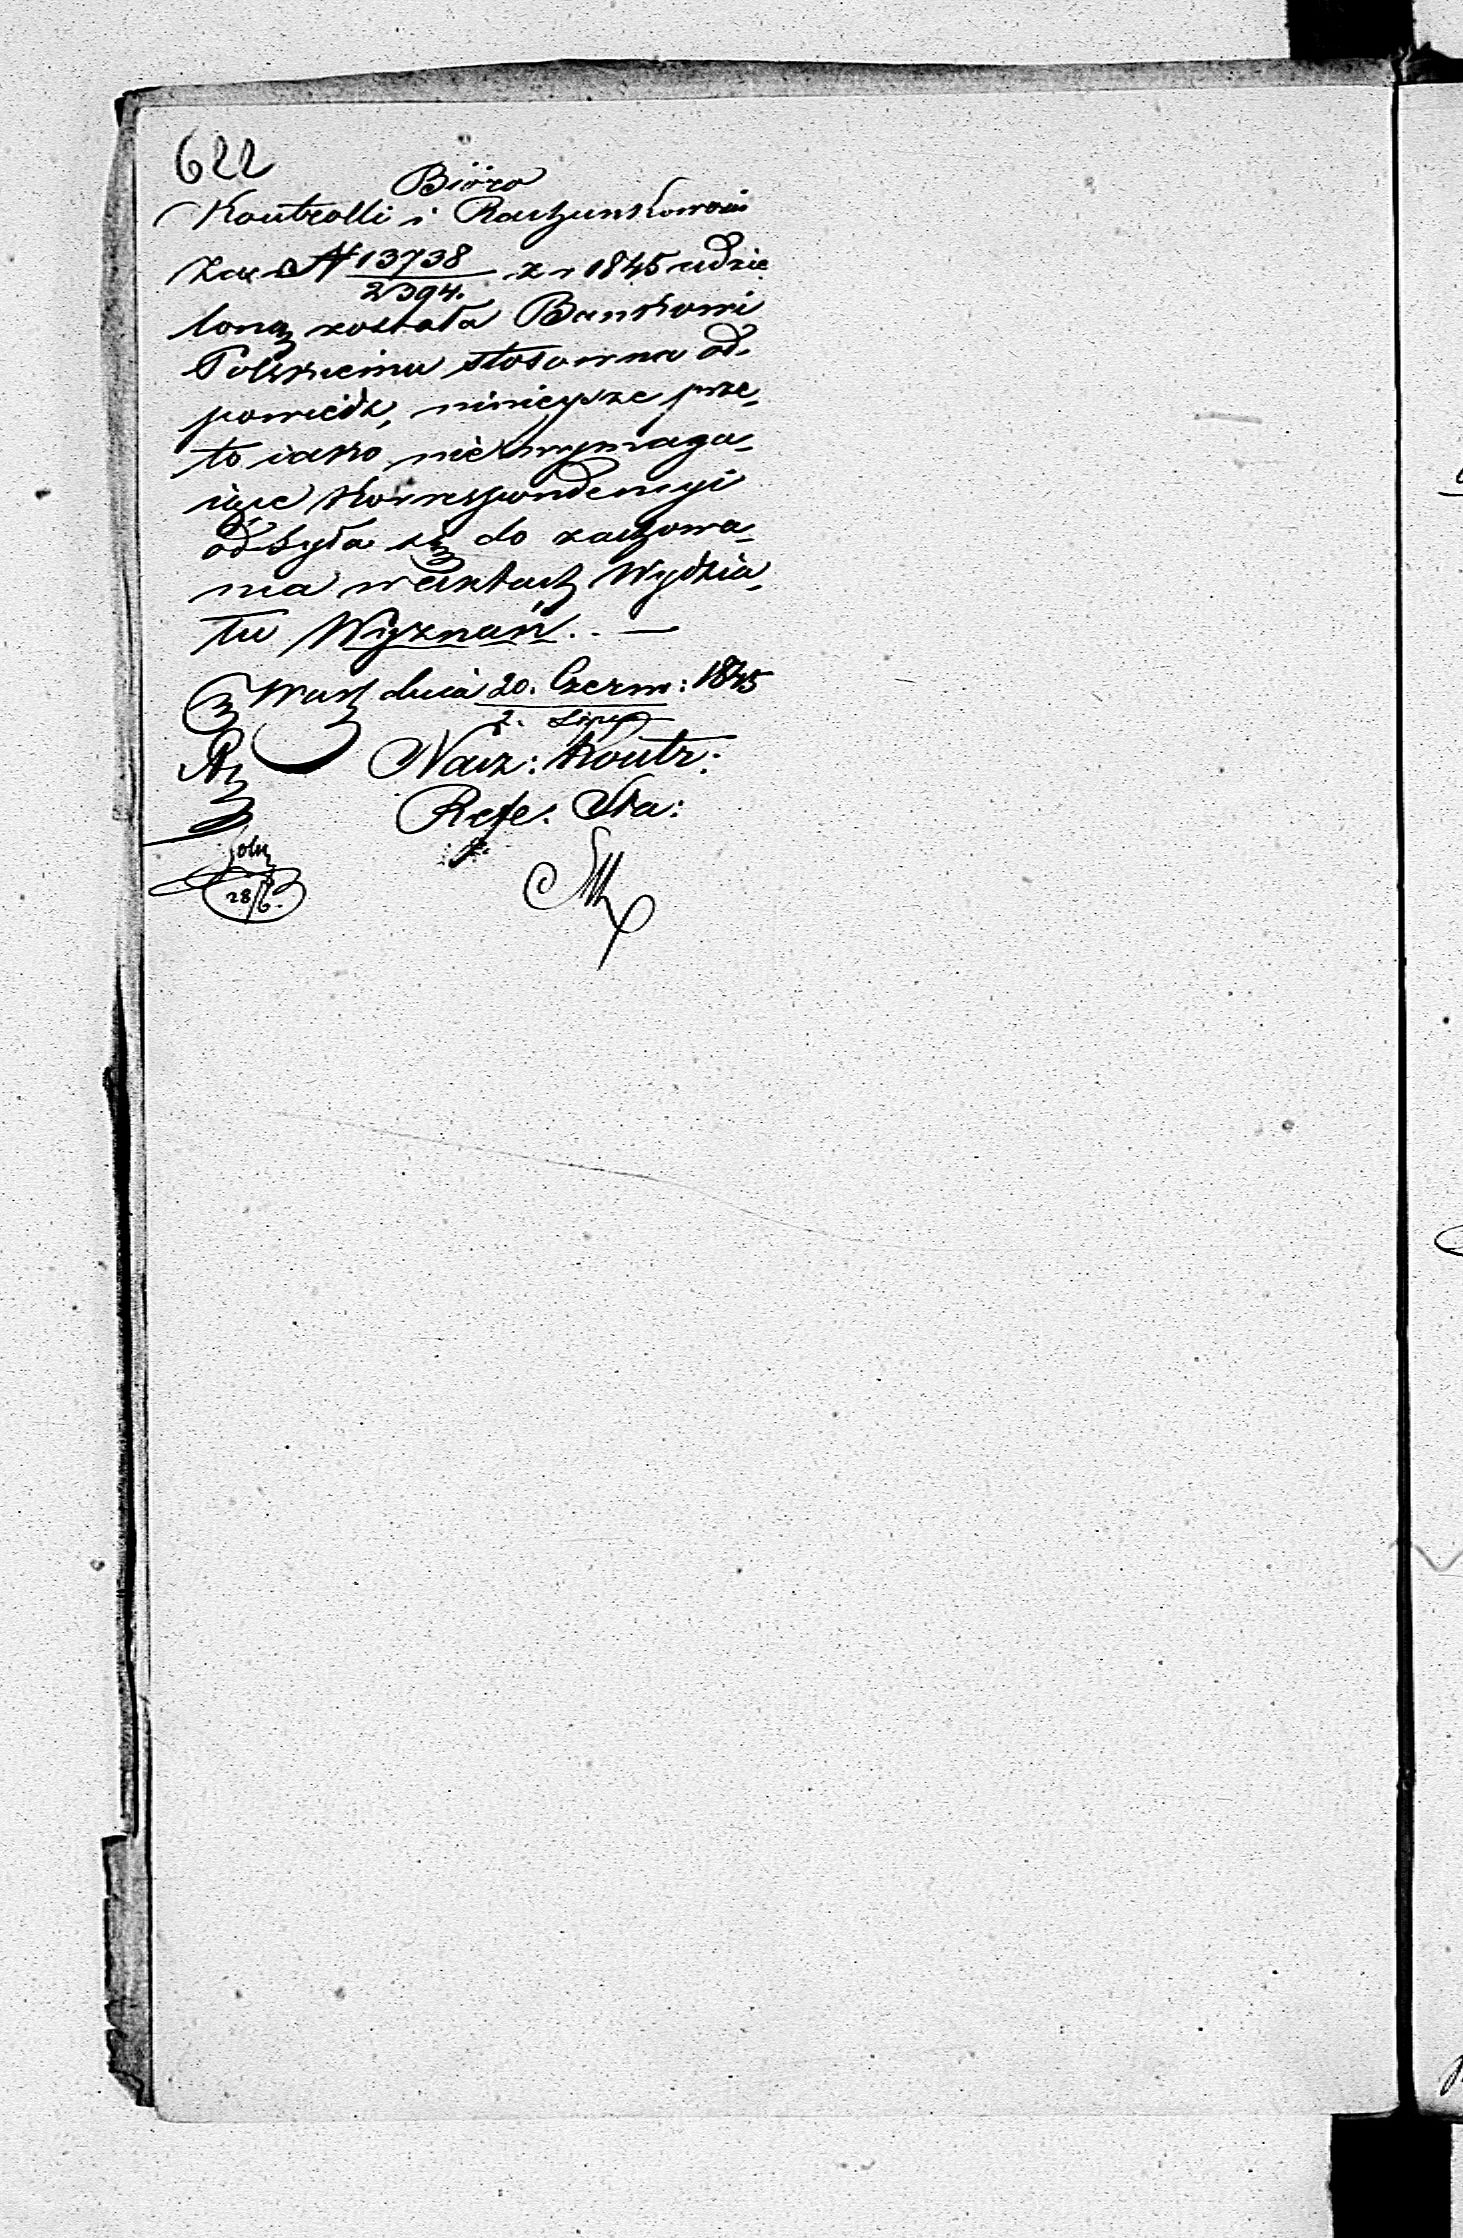 622
Bióro
Kontrolli i Rachunkowości
Za № 13738/2394. z r 1845 udzie
loną została Bankowi
Polskiemu stosowna od-
powiedź, nınieysze prze-
to iako nie wymaga-
iące korrespondencyi
odsyła się do zachowa-
nia w aktach Wydzia-
łu Wyznań. . —
Warsz dnia 20. Czerw: / 2. Lipca 1845
Nacz: Kontr:
Refe. Sta:
28/6.